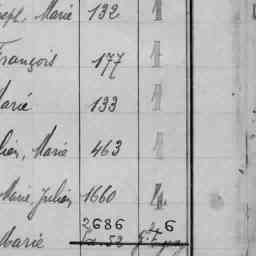 Marie 132 1
François 177 1
Marie 133 1
Marie 463 1
Marie, Julien 1660 4
2686 6
Marie